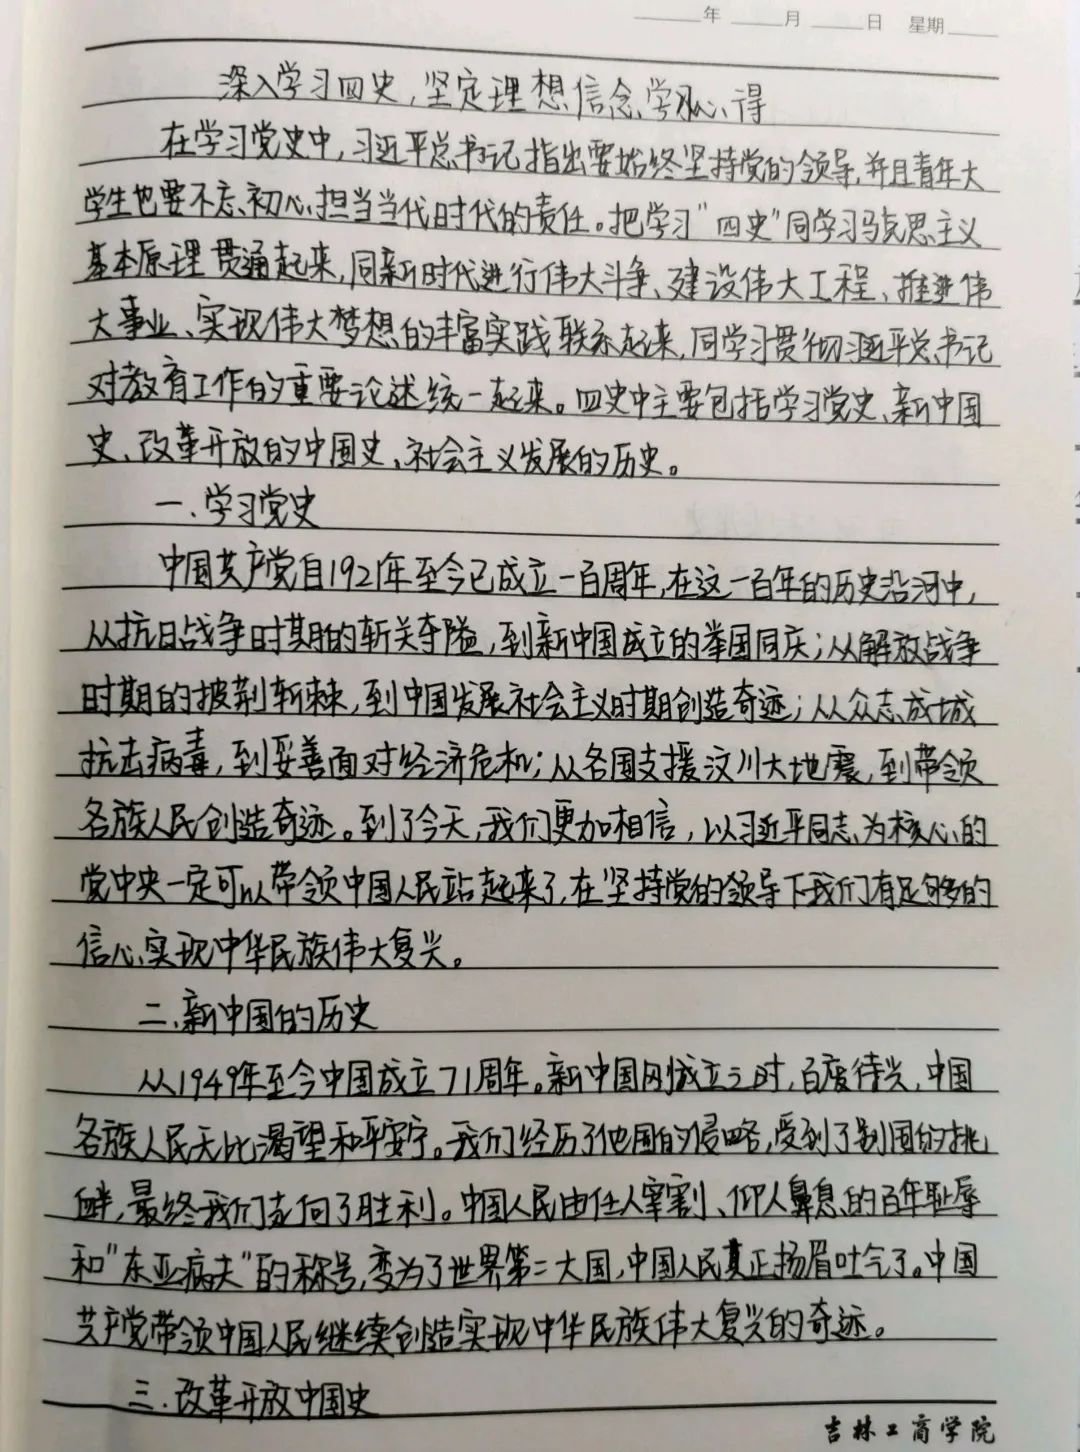 ____年____月____日 星期____
深入学习四史,坚定理想信念学习心得
在学习党史中,习近平总书记指出要始终坚持党的领导,并且青年大
学生也要不忘初心,担当当代时代的责任。把学习"四史"同学习马克思主义
基本原理贯通起来,同新时代进行伟大斗争、建设伟大工程、推进伟
大事业、实现伟大梦想的丰富实践联系起来,同学习贯彻习近平总书记
对教育工作的重要论述统一起来。四史中主要包括学习党史、新中国
史、改革开放的中国史、社会主义发展的历史。
一.学习党史
中国共产党自1921年至今已成立一百周年,在这一百年的历史沿河中,
从抗日战争时期的斩关夺隘,到新中国成立的举国同庆;从解放战争
时期的披荆斩棘,到中国发展社会主义时期创造奇迹;从众志成城
抗击病毒,到妥善面对经济危机;从各国支援汶川大地震,到带领
各族人民创造奇迹。到了今天,我们更加相信,以习近平同志为核心的
党中央一定可以带领中国人民站起来了,在坚持党的领导下我们有足够的
信心实现中华民族伟大复兴。
二.新中国的历史
从1949年至今中国成立71周年。新中国刚成立之时,百废待兴,中国
各族人民无比渴望和平安宁。我们经历了他国的侵略,受到了别国的挑
衅,最终我们走向了胜利。中国人民由任人宰割、仰人鼻息的百年耻辱
和"东亚病夫"的称号,变为了世界第二大国,中国人民真正扬眉吐气了。中国
共产党带领中国人民继续创造实现中华民族伟大复兴的奇迹。
三.改革开放中国史
吉林工商学院